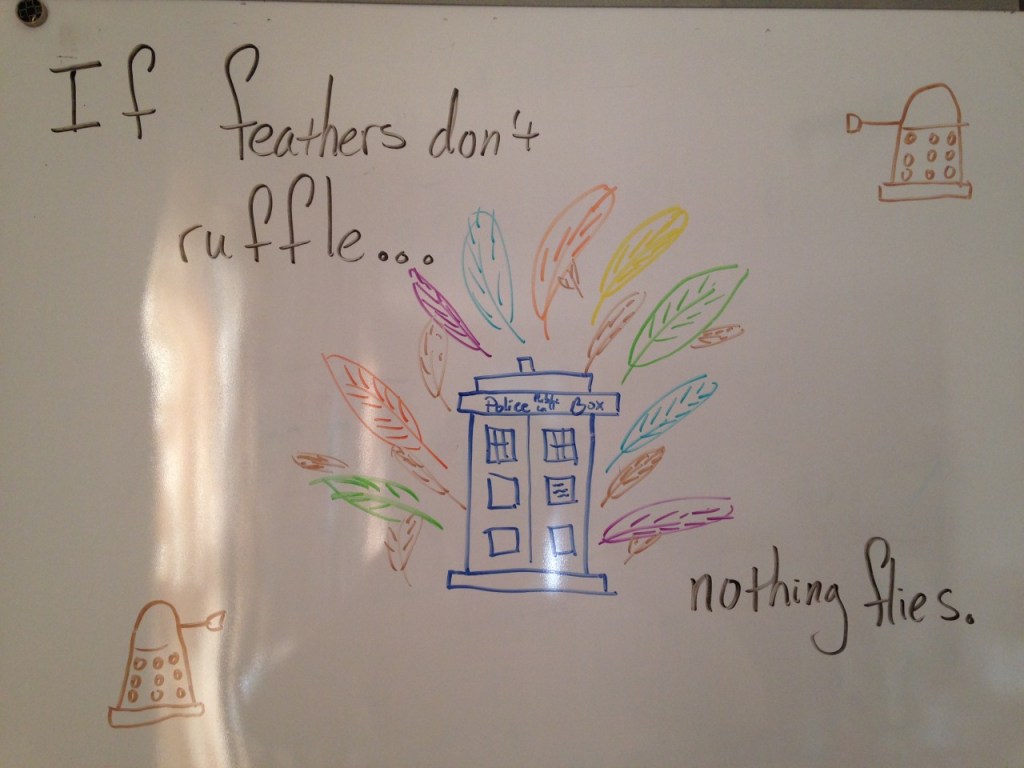 If feathers don't
ruffle...
Police Public Call Box
nothing flies.